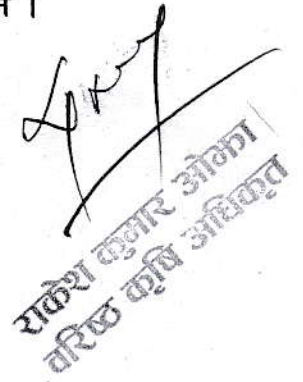 राकेश कुमार ओम्भा
वरिष्ठ कृषि अधिकृत